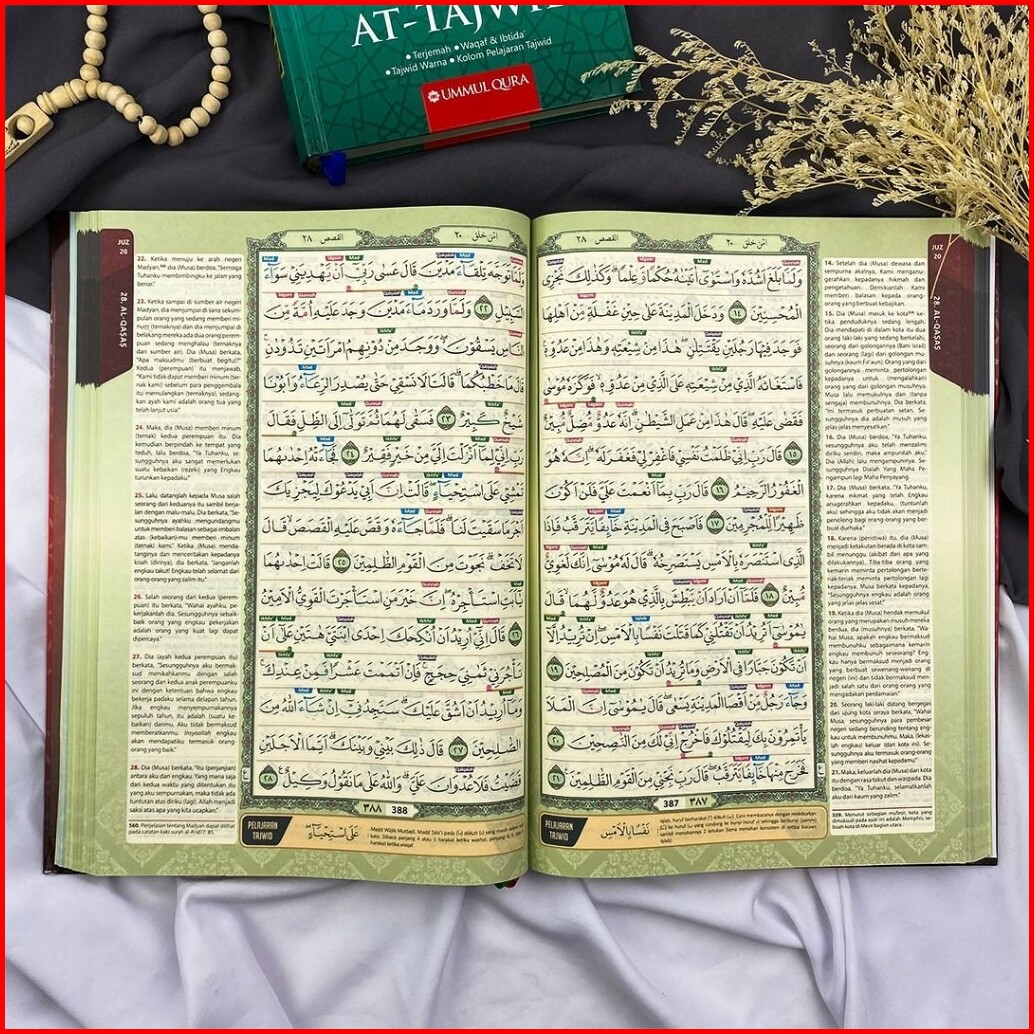 AT-TAJWID
• Terjemah • Waqaf & Ibtida'
• Tajwid Warna • Kolom Pelajaran Tajwid
UMMUL QURA
JUZ
20
28. AL-QASAS
القصص ٢٨
امّن خلق ٢٠
وَلَمَّا بَلَغَ اَشُدَّهٗ وَاسْتَوٰىٓ اٰتَيْنٰهُ حُكْمًا وَّعِلْمًاۗ وَكَذٰلِكَ نَجْزِى
الْمُحْسِنِيْنَ ١٤ وَدَخَلَ الْمَدِيْنَةَ عَلٰى حِيْنِ غَفْلَةٍ مِّنْ اَهْلِهَا
فَوَجَدَ فِيْهَا رَجُلَيْنِ يَقْتَتِلٰنِۖ هٰذَا مِنْ شِيْعَتِهٖ وَهٰذَا مِنْ عَدُوِّهٖۚ
فَاسْتَغَاثَهُ الَّذِيْ مِنْ شِيْعَتِهٖ عَلَى الَّذِيْ مِنْ عَدُوِّهٖۙ فَوَكَزَهٗ مُوْسٰى
فَقَضٰى عَلَيْهِۖ قَالَ هٰذَا مِنْ عَمَلِ الشَّيْطٰنِۗ اِنَّهٗ عَدُوٌّ مُّضِلٌّ مُّبِيْنٌ
١٥ قَالَ رَبِّ اِنِّيْ ظَلَمْتُ نَفْسِيْ فَاغْفِرْ لِيْ فَغَفَرَ لَهٗۗ اِنَّهٗ هُوَ
الْغَفُوْرُ الرَّحِيْمُ ١٦ قَالَ رَبِّ بِمَآ اَنْعَمْتَ عَلَيَّ فَلَنْ اَكُوْنَ
ظَهِيْرًا لِّلْمُجْرِمِيْنَ ١٧ فَاَصْبَحَ فِى الْمَدِيْنَةِ خَاۤىِٕفًا يَّتَرَقَّبُ فَاِذَا
الَّذِى اسْتَنْصَرَهٗ بِالْاَمْسِ يَسْتَصْرِخُهٗۗ قَالَ لَهٗ مُوْسٰىٓ اِنَّكَ لَغَوِيٌّ
مُّبِيْنٌ ١٨ فَلَمَّآ اَنْ اَرَادَ اَنْ يَّبْطِشَ بِالَّذِيْ هُوَ عَدُوٌّ لَّهُمَاۙ قَالَ
يٰمُوْسٰٓى اَتُرِيْدُ اَنْ تَقْتُلَنِيْ كَمَا قَتَلْتَ نَفْسًاۢ بِالْاَمْسِۖ اِنْ تُرِيْدُ اِلَّآ
اَنْ تَكُوْنَ جَبَّارًا فِى الْاَرْضِ وَمَا تُرِيْدُ اَنْ تَكُوْنَ مِنَ الْمُصْلِحِيْنَ ١٩
وَجَاۤءَ رَجُلٌ مِّنْ اَقْصَا الْمَدِيْنَةِ يَسْعٰىۖ قَالَ يٰمُوْسٰٓى اِنَّ الْمَلَاَ
يَأْتَمِرُوْنَ بِكَ لِيَقْتُلُوْكَ فَاخْرُجْ اِنِّيْ لَكَ مِنَ النّٰصِحِيْنَ ٢٠
فَخَرَجَ مِنْهَا خَاۤىِٕفًا يَّتَرَقَّبُۖ قَالَ رَبِّ نَجِّنِيْ مِنَ الْقَوْمِ الظّٰلِمِيْنَ ٢١
387 ٣٨٧
PELAJARAN
TAJWID
نَفْسًاۢ بِالْاَمْسِۖ
14. Setelah dia (Musa) dewasa dan
sempurna akalnya, Kami menganu-
gerahkan kepadanya hikmah dan
pengetahuan. Demikianlah Kami
memberi balasan kepada orang-
orang yang berbuat kebajikan.
15. Dia (Musa) masuk ke kota ke-
tika penduduknya sedang lengah.
Dia mendapati di dalam kota itu dua
orang laki-laki yang sedang berkelahi,
seorang dari golongannya (Bani Israil)
dan seorang (lagi) dari golongan mu-
suhnya (kaum Fir'aun). Orang yang dari
golongannya meminta pertolongan
kepadanya untuk (mengalahkan)
orang yang dari golongan musuhnya.
Musa lalu memukulnya dan (tanpa
sengaja) membunuhnya. Dia berkata,
"Ini termasuk perbuatan setan. Se-
sungguhnya dia adalah musuh yang
jelas menyesatkan."
16. Dia (Musa) berdoa, "Ya Tuhanku,
sesungguhnya aku telah menzalimi
diriku sendiri, maka ampunilah aku."
Dia (Allah) lalu mengampuninya. Se-
sungguhnya Dialah Yang Maha Pe-
ngampun lagi Maha Penyayang.
17. Dia (Musa) berkata, "Ya Tuhanku,
karena nikmat yang telah Engkau
anugerahkan kepadaku, (tuntunlah
aku) sehingga aku tidak akan menjadi
penolong bagi orang-orang yang ber-
buat durhaka."
18. Karena (peristiwa) itu, dia (Musa)
menjadi ketakutan berada di kota sam-
bil menunggu (akibat dari apa yang
dilakukannya). Tiba-tiba orang yang
kemarin meminta pertolongan berte-
riak-teriak meminta pertolongan lagi
kepadanya. Musa berkata kepadanya,
"Sesungguhnya engkau adalah orang
yang jelas-jelas sesat."
19. Ketika dia (Musa) hendak memukul
dengan keras orang yang menjadi musuh
berdua, dia (musuhnya) berkata, "Wa-
hai Musa, apakah engkau bermaksud
membunuhku sebagaimana kemarin
engkau membunuh seseorang? Eng-
kau hanya bermaksud menjadi orang
yang berbuat sewenang-wenang di
negeri (ini) dan tidak bermaksud men-
jadi salah satu dari orang-orang yang
mengadakan perdamaian."
20. Seorang laki-laki datang bergegas
dari ujung kota seraya berkata, "Wahai
Musa, sesungguhnya para pembesar
negeri sedang berunding tentang eng-
kau untuk membunuhmu. Maka, (lekas-
lah) engkau keluar (dari kota ini). Se-
sungguhnya aku termasuk orang-orang
yang memberi nasihat kepadamu."
21. Maka, keluarlah dia (Musa) dari kota
itu dengan rasa takut dan waspada. Dia
berdoa, "Ya Tuhanku, selamatkanlah
aku dari kaum yang zalim."
559. Menurut sebagian mufasir, kota yang
dimaksud pada ayat ini adalah Memphis, se-
buah kota di Mesir bagian utara.
JUZ
20
28. AL-QASAS
القصص ٢٨
امّن خلق ٢٠
وَلَمَّا تَوَجَّهَ تِلْقَاۤءَ مَدْيَنَ قَالَ عَسٰى رَبِّيْٓ اَنْ يَّهْدِيَنِيْ سَوَاۤءَ
السَّبِيْلِ ٢٢ وَلَمَّا وَرَدَ مَاۤءَ مَدْيَنَ وَجَدَ عَلَيْهِ اُمَّةً مِّنَ
النَّاسِ يَسْقُوْنَ وَوَجَدَ مِنْ دُوْنِهِمُ امْرَاَتَيْنِ تَذُوْدٰنِۚ
قَالَ مَا خَطْبُكُمَاۗ قَالَتَا لَا نَسْقِيْ حَتّٰى يُصْدِرَ الرِّعَاۤءُ وَاَبُوْنَا
شَيْخٌ كَبِيْرٌ ٢٣ فَسَقٰى لَهُمَا ثُمَّ تَوَلّٰىٓ اِلَى الظِّلِّ فَقَالَ
رَبِّ اِنِّيْ لِمَآ اَنْزَلْتَ اِلَيَّ مِنْ خَيْرٍ فَقِيْرٌ ٢٤ فَجَاۤءَتْهُ اِحْدٰىهُمَا
تَمْشِيْ عَلَى اسْتِحْيَاۤءٍۖ قَالَتْ اِنَّ اَبِيْ يَدْعُوْكَ لِيَجْزِيَكَ
اَجْرَ مَا سَقَيْتَ لَنَاۗ فَلَمَّا جَاۤءَهٗ وَقَصَّ عَلَيْهِ الْقَصَصَۙ قَالَ
لَا تَخَفْۗ نَجَوْتَ مِنَ الْقَوْمِ الظّٰلِمِيْنَ ٢٥ قَالَتْ اِحْدٰىهُمَا
يٰٓاَبَتِ اسْتَأْجِرْهُۖ اِنَّ خَيْرَ مَنِ اسْتَأْجَرْتَ الْقَوِيُّ الْاَمِيْنُ
٢٦ قَالَ اِنِّيْٓ اُرِيْدُ اَنْ اُنْكِحَكَ اِحْدَى ابْنَتَيَّ هٰتَيْنِ عَلٰٓى اَنْ
تَأْجُرَنِيْ ثَمٰنِيَ حِجَجٍۚ فَاِنْ اَتْمَمْتَ عَشْرًا فَمِنْ عِنْدِكَۚ
وَمَآ اُرِيْدُ اَنْ اَشُقَّ عَلَيْكَۗ سَتَجِدُنِيْٓ اِنْ شَاۤءَ اللّٰهُ مِنَ
الصّٰلِحِيْنَ ٢٧ قَالَ ذٰلِكَ بَيْنِيْ وَبَيْنَكَۗ اَيَّمَا الْاَجَلَيْنِ
قَضَيْتُ فَلَا عُدْوَانَ عَلَيَّۗ وَاللّٰهُ عَلٰى مَا نَقُوْلُ وَكِيْلٌ ٢٨
٣٨٨ 388
PELAJARAN
TAJWID
عَلَى اسْتِحْيَاۤءٍۖ
22. Ketika menuju ke arah negeri
Madyan, dia (Musa) berdoa, "Semoga
Tuhanku membimbingku ke jalan yang
benar."
23. Ketika sampai di sumber air negeri
Madyan, dia menjumpai di sana sekum-
pulan orang yang sedang memberi mi-
num (ternaknya) dan dia menjumpai di
belakang mereka ada dua orang perem-
puan sedang menghalau (ternaknya
dari sumber air). Dia (Musa) berkata,
"Apa maksudmu (berbuat begitu)?"
Kedua (perempuan) itu menjawab,
"Kami tidak dapat memberi minum (ter-
nak kami) sebelum para penggembala
itu memulangkan (ternaknya), sedang-
kan ayah kami adalah orang tua yang
telah lanjut usia."
24. Maka, dia (Musa) memberi minum
(ternak) kedua perempuan itu. Dia
kemudian berpindah ke tempat yang
teduh, lalu berdoa, "Ya Tuhanku, se-
sungguhnya aku sangat memerlukan
suatu kebaikan (rezeki) yang Engkau
turunkan kepadaku."
25. Lalu, datanglah kepada Musa salah
seorang dari keduanya itu sambil berja-
lan dengan malu-malu. Dia berkata, "Se-
sungguhnya ayahku mengundangmu
untuk memberi balasan sebagai imbalan
atas (kebaikan)-mu memberi minum
(ternak) kami." Ketika (Musa) menda-
tanginya dan menceritakan kepadanya
kisah (dirinya), dia berkata, "Janganlah
engkau takut! Engkau telah selamat dari
orang-orang yang zalim itu."
26. Salah seorang dari kedua (perem-
puan) itu berkata, "Wahai ayahku, pe-
kerjakanlah dia. Sesungguhnya sebaik-
baik orang yang engkau pekerjakan
adalah orang yang kuat lagi dapat
dipercaya."
27. Dia (ayah kedua perempuan itu)
berkata, "Sesungguhnya aku bermak-
sud menikahkanmu dengan salah
seorang dari kedua anak perempuanku
ini dengan ketentuan bahwa engkau
bekerja padaku selama delapan tahun.
Jika engkau menyempurnakannya
sepuluh tahun, itu adalah (suatu ke-
baikan) darimu. Aku tidak bermaksud
memberatkanmu. Insyaallah engkau
akan mendapatiku termasuk orang-
orang yang baik."
28. Dia (Musa) berkata, "Itu (perjanjian)
antara aku dan engkau. Yang mana saja
dari kedua waktu yang ditentukan itu
yang aku sempurnakan, maka tidak ada
tuntutan atas diriku (lagi). Allah menjadi
saksi atas apa yang kita ucapkan."
560. Penjelasan tentang Madyan dapat dilihat
pada catatan kaki surah al-A'raf/7: 85.